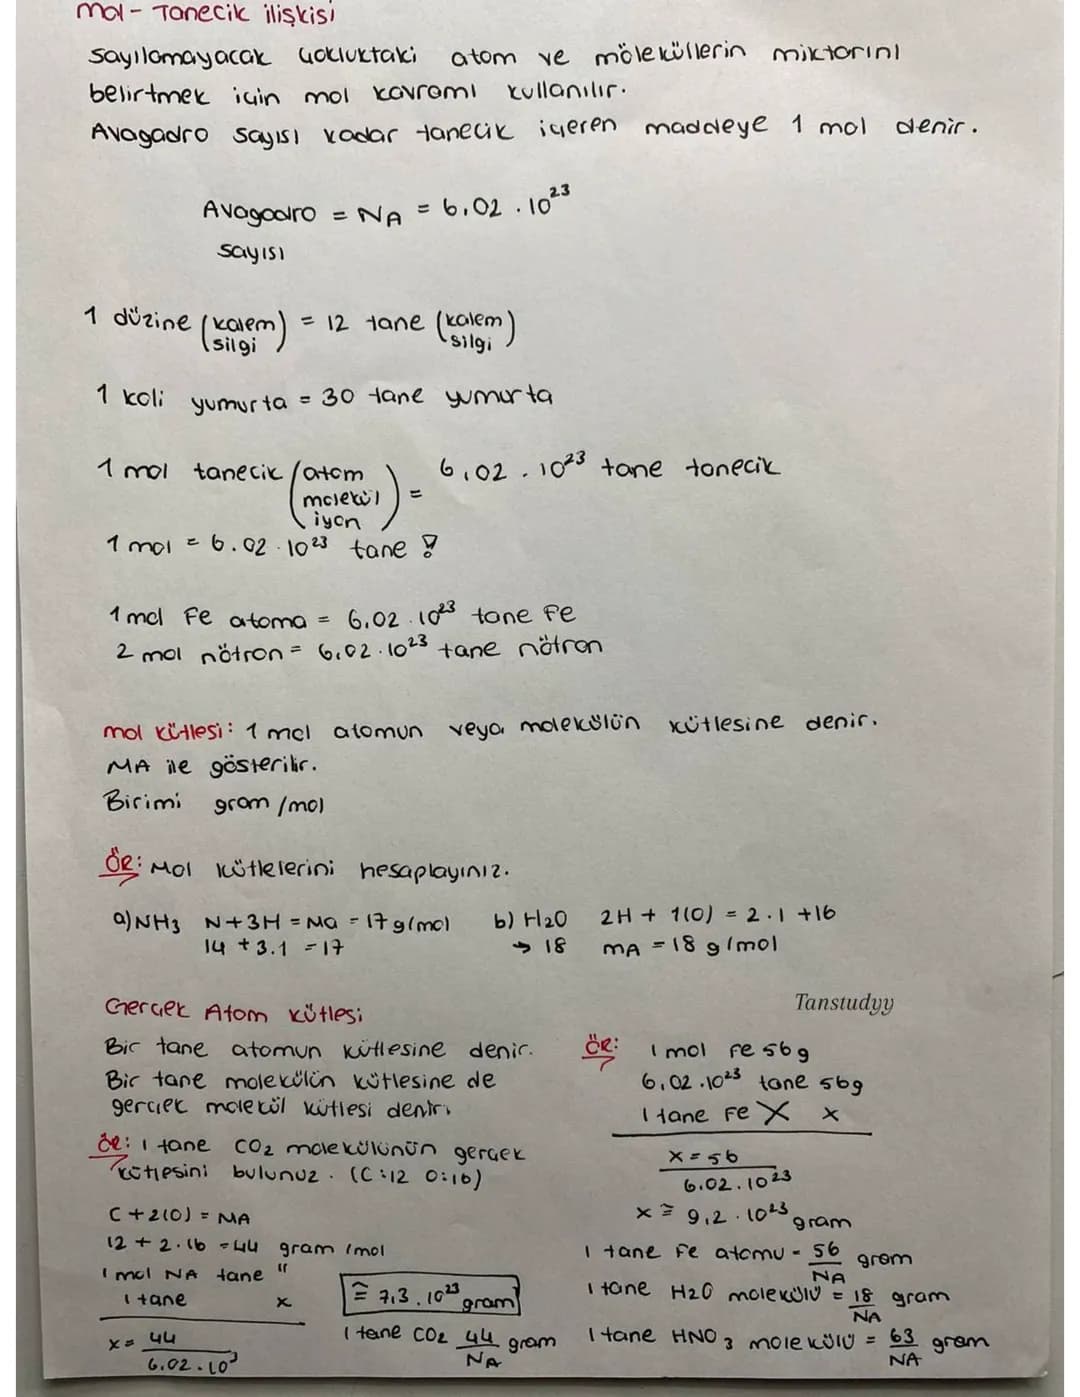 mol - Tanecik ilişkisi
Sayılamayacak çokluktaki atom ve möleküllerin miktarını
belirtmek için mol kavramı kullanılır.
Avagadro sayısı kadar tanecik içeren maddeye 1 mol denir.
Avagadro = NA = 6,02 . 10²³
sayısı
1 düzine (kalem silgi) = 12 tane (kalem silgi)
1 koli yumurta = 30 tane yumurta
1 mol tanecik (atom molekül iyon) = 6,02 . 10²³ tane tanecik
1 mol = 6.02 . 10²³ tane !
1 mol Fe atoma = 6,02 . 10²³ tane Fe
2 mol nötron = 6,02 . 10²³ tane nötron
mol kütlesi: 1 mol atomun veya molekülün kütlesine denir.
MA ile gösterilir.
Birimi gram /mol
ÖR: Mol kütlelerini hesaplayınız.
a) NH₃ N+3H = Ma = 17 g/mol b) H₂O 2H + 1(O) = 2.1 +16
14 + 3.1 = 17 → 18 mA = 18 g/mol
Gerçek Atom kütlesi
Tanstudyy
Bir tane atomun kütlesine denir.
Bir tane molekülün kütlesine de
gerçek molekül kütlesi denir.
ÖR: 1 tane CO₂ molekülünün gerçek
kütlesini bulunuz. (C:12 O:16)
C + 2(O) = MA
12 + 2.16 = 44 gram /mol
1 mol NA tane "
1 tane x
x = 44
6.02.10³
≅ 7,3 . 10²³ gram
1 tane CO₂ 44 gram
NA
ÖR: 1 mol Fe 56g
6,02 .10²³ tane 56g
1 tane Fe X x
x = 56
6.02.10²³
x ≅ 9,2 . 10²³ gram
1 tane Fe atomu - 56 gram
NA
1 tane H₂O molekülü = 18 gram
NA
1 tane HNO₃ molekülü = 63 gram
NA